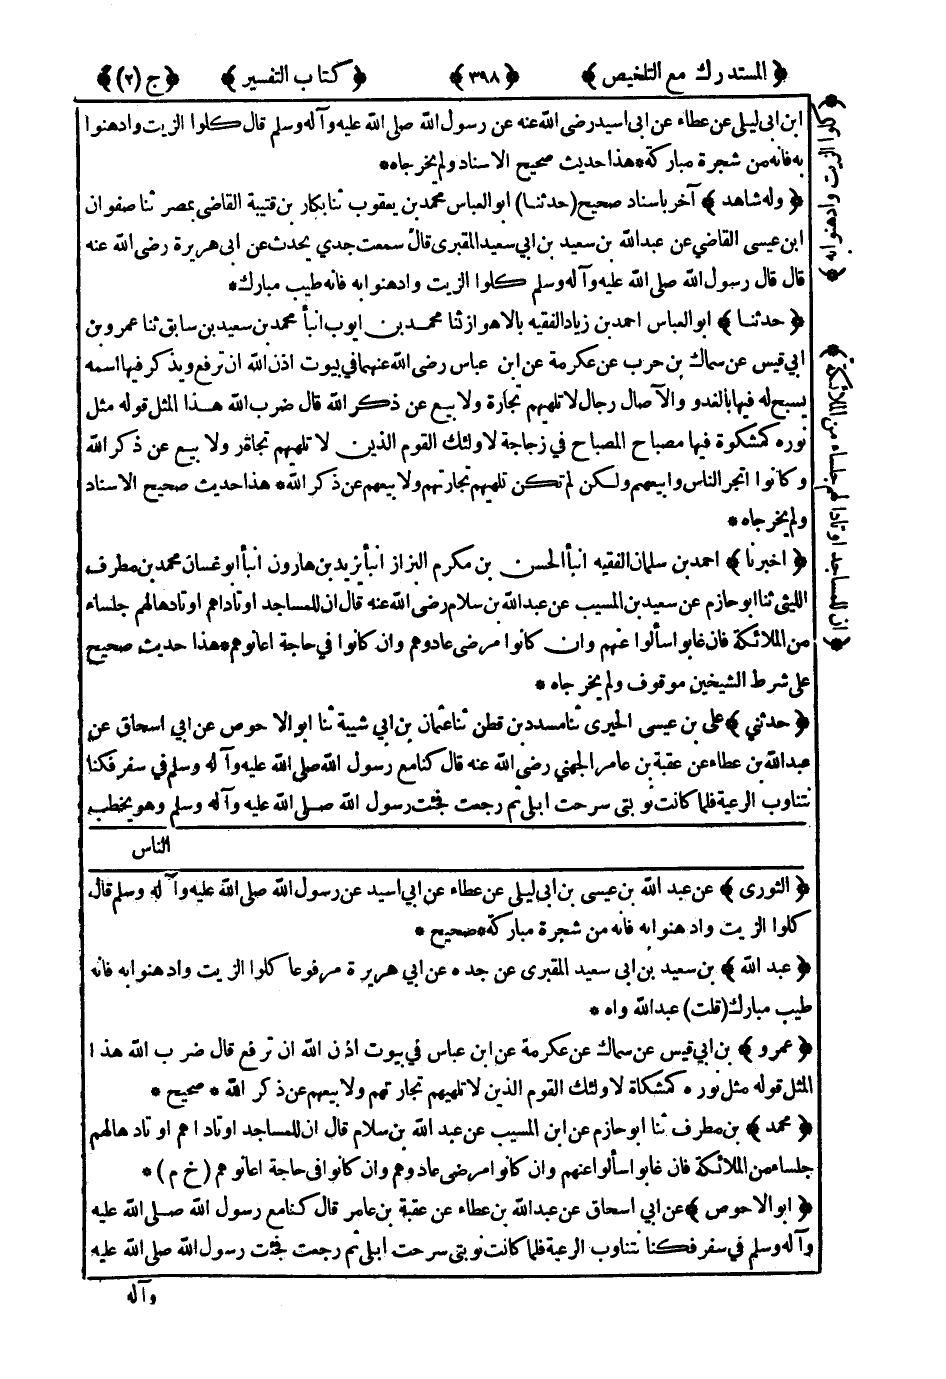 ﴿ المستدرك مع التلخيص ﴾ ﴿ ٣٩٨ ﴾ ﴿ كتاب التفسير ﴾ ﴿ ج (٢) ﴾
ابن ابى ليلى عن عطاء عن ابى اسيد رضى الله عنه عن رسول الله صلى الله عليه وآله وسلم قال كلوا الزيت وادهنوا
به فانه من شجرة مباركة * هذا حديث صحيح الاسناد ولم يخرجاه *
﴿ وله شاهد ﴾ آخر باسناد صحيح (حدثنا) ابو العباس محمد بن يعقوب ثنا بكار بن قتيبة القاضى بمصر ثنا صفوان
ابن عيسى القاضى عن عبد الله بن سعيد بن ابي سعيد المقبرى قال سمعت جدي يحدث عن ابى هريرة رضى الله عنه
قال قال رسول الله صلى الله عليه وآله وسلم كلوا الزيت وادهنوا به فانه طيب مبارك *
﴿ حدثنا ﴾ ابو العباس احمد بن زياد الفقيه بالاهواز ثنا محمد بن ايوب انبأ محمد بن سعيد بن سابق ثنا عمرو بن
ابي قيس عن سماك بن حرب عن عكرمة عن ابن عباس رضى الله عنهما في بيوت اذن الله ان ترفع ويذكر فيها اسمه
يسبح له فيها بالغدو والآصال رجال لا تلهيهم تجارة ولا بيع عن ذكر الله قال ضرب الله هذا المثل قوله مثل
نوره كمشكوة فيها مصباح المصباح في زجاجة لاولئك القوم الذين لا تلهيهم تجارة ولا بيع عن ذكر الله
وكانوا اتجر الناس وابيعهم ولكن لم تكن تلهيهم تجارتهم ولا بيعهم عن ذكر الله * هذا حديث صحيح الاسناد
ولم يخرجاه *
﴿ اخبرنا ﴾ احمد بن سلمان الفقيه انبأ الحسن بن مكرم البزاز انبأ يزيد بن هارون انبأ ابو غسان محمد بن مطرف
الليثى ثنا ابو حازم عن سعيد بن المسيب عن عبد الله بن سلام رضى الله عنه قال ان للمساجد اوتادا هم اوتادها لهم جلساء
من الملائكة فان غابوا سألوا عنهم وان كانوا مرضى عادوهم وان كانوا في حاجة اعانوهم * هذا حديث صحيح
على شرط الشيخين موقوف ولم يخرجاه *
﴿ حدثني ﴾ على بن عيسى الحيرى ثنا مسدد بن قطن ثنا عثمان بن ابي شيبة ثنا ابو الاحوص عن ابي اسحاق عن
عبد الله بن عطاء عن عقبة بن عامر الجهني رضى الله عنه قال كنا مع رسول الله صلى الله عليه وآله وسلم في سفر فكنا
نتناوب الرعية فلما كانت نوبتى سرحت ابلى ثم رجعت فجئت رسول الله صلى الله عليه وآله وسلم وهو يخطب
الناس
﴿ الثورى ﴾ عن عبد الله بن عيسى بن ابى ليلى عن عطاء عن ابي اسيد عن رسول الله صلى الله عليه وآله وسلم قال
كلوا الزيت وادهنوا به فانه من شجرة مباركة * صحيح *
﴿ عبد الله ﴾ بن سعيد بن ابى سعيد المقبرى عن جده عن ابي هريرة مرفوعا كلوا الزيت وادهنوا به فانه
طيب مبارك (قلت) عبد الله واه *
﴿ عمرو ﴾ بن ابي قيس عن سماك عن عكرمة عن ابن عباس في بيوت اذن الله ان ترفع قال ضرب الله هذا
المثل قوله مثل نوره كمشكاة لاولئك القوم الذين لا تلهيهم تجارتهم ولا بيعهم عن ذكر الله * صحيح *
﴿ محمد ﴾ بن مطرف ثنا ابو حازم عن ابن المسيب عن عبد الله بن سلام قال ان للمساجد اوتادا هم اوتادها لهم
جلساء من الملائكة فان غابوا سألوا عنهم وان كانوا مرضى عادوهم وان كانوا فى حاجة اعانوهم (خ م) *
﴿ ابو الاحوص ﴾ عن ابي اسحاق عن عبد الله بن عطاء عن عقبة بن عامر قال كنا مع رسول الله صلى الله عليه
وآله وسلم في سفر فكنا نتناوب الرعية فلما كانت نوبتى سرحت ابلى ثم رجعت فجئت رسول الله صلى الله عليه
وآله
﴿ كلوا الزيت وادهنوا به ﴾
﴿ ان للمساجد اوتادا لهم جلساء من الملائكة ﴾